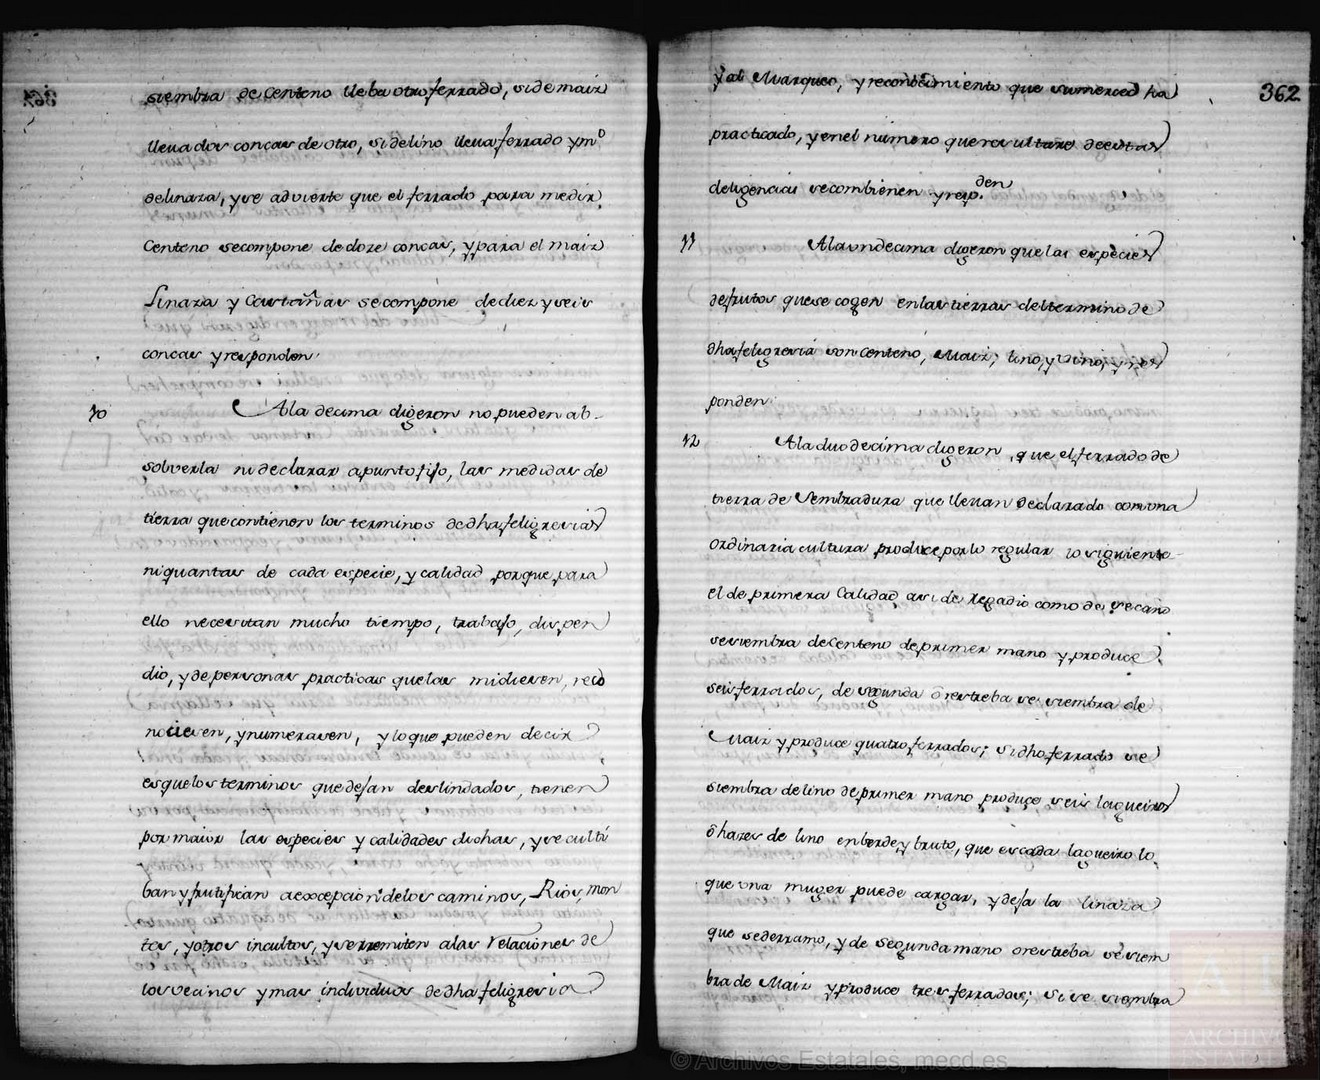 siembra de Centeno lleba otro ferrado, si de maiz
lleua dos concas de otro, si de lino lleua ferrado y mº
de linaza, y se advierte que el ferrado para medir
Centeno se compone de doze concas, y para el maiz
Linaza y Castañas se compone de diez y seis
concas y responden
10 A la decima digeron no pueden ab-
solverla ni declarar a punto fijo, las medidas de
tierra que contienen los terminos de dha feligresia
ni quantas de cada especie, y calidad porque para
ello necesitan mucho tiempo, trabajo, dispen
dio, y de personas practicas que las midiesen, reco
nociesen, y numerasen, y lo que pueden decir
es que los terminos que dejan deslindados, tienen
por maior las especies y calidades dichas, y se culti
ban y frutifican a excepcion de los caminos, Rios, mon
tes, y otros incultos, y se rremiten a las Relaciones de
los vecinos y mas individuos de dha feligresia
362
y al Marqueo, y reconocimiento que sumerced ha
practicado, y en el número que resultare de estas
deligencias se combienen y resp.den
11 A la undecima digeron que las especies
de frutos que se cogen en las tierras del termino de
dha feligresia son Centeno, Maiz, lino, y vino, y res
ponden
12 A la duodecima digeron, que el ferrado de
tierra de Sembradura que lleuan Declarado con una
ordinaria cultura produce por lo regular lo siguiente
el de primera Calidad asi de Regadio como de secano
se siembra de Centeno de primer mano y produce
seis ferrados, de segunda ô restreba se siembra de
Maiz y produce quatro ferrados; si dho ferrado se
siembra de lino de primer mano produce seis lagueiros
ô hazes de lino en berde y bruto, que es cada lagueiro lo
que una muger puede cargar, y deja la linaza
que se derramo, y de Segunda mano o restreba se siem
bra de Maiz y produce tres ferrados; si se siembra
© Archivos Estatales, mecd.es
ARCHIVOS
ESTATALES